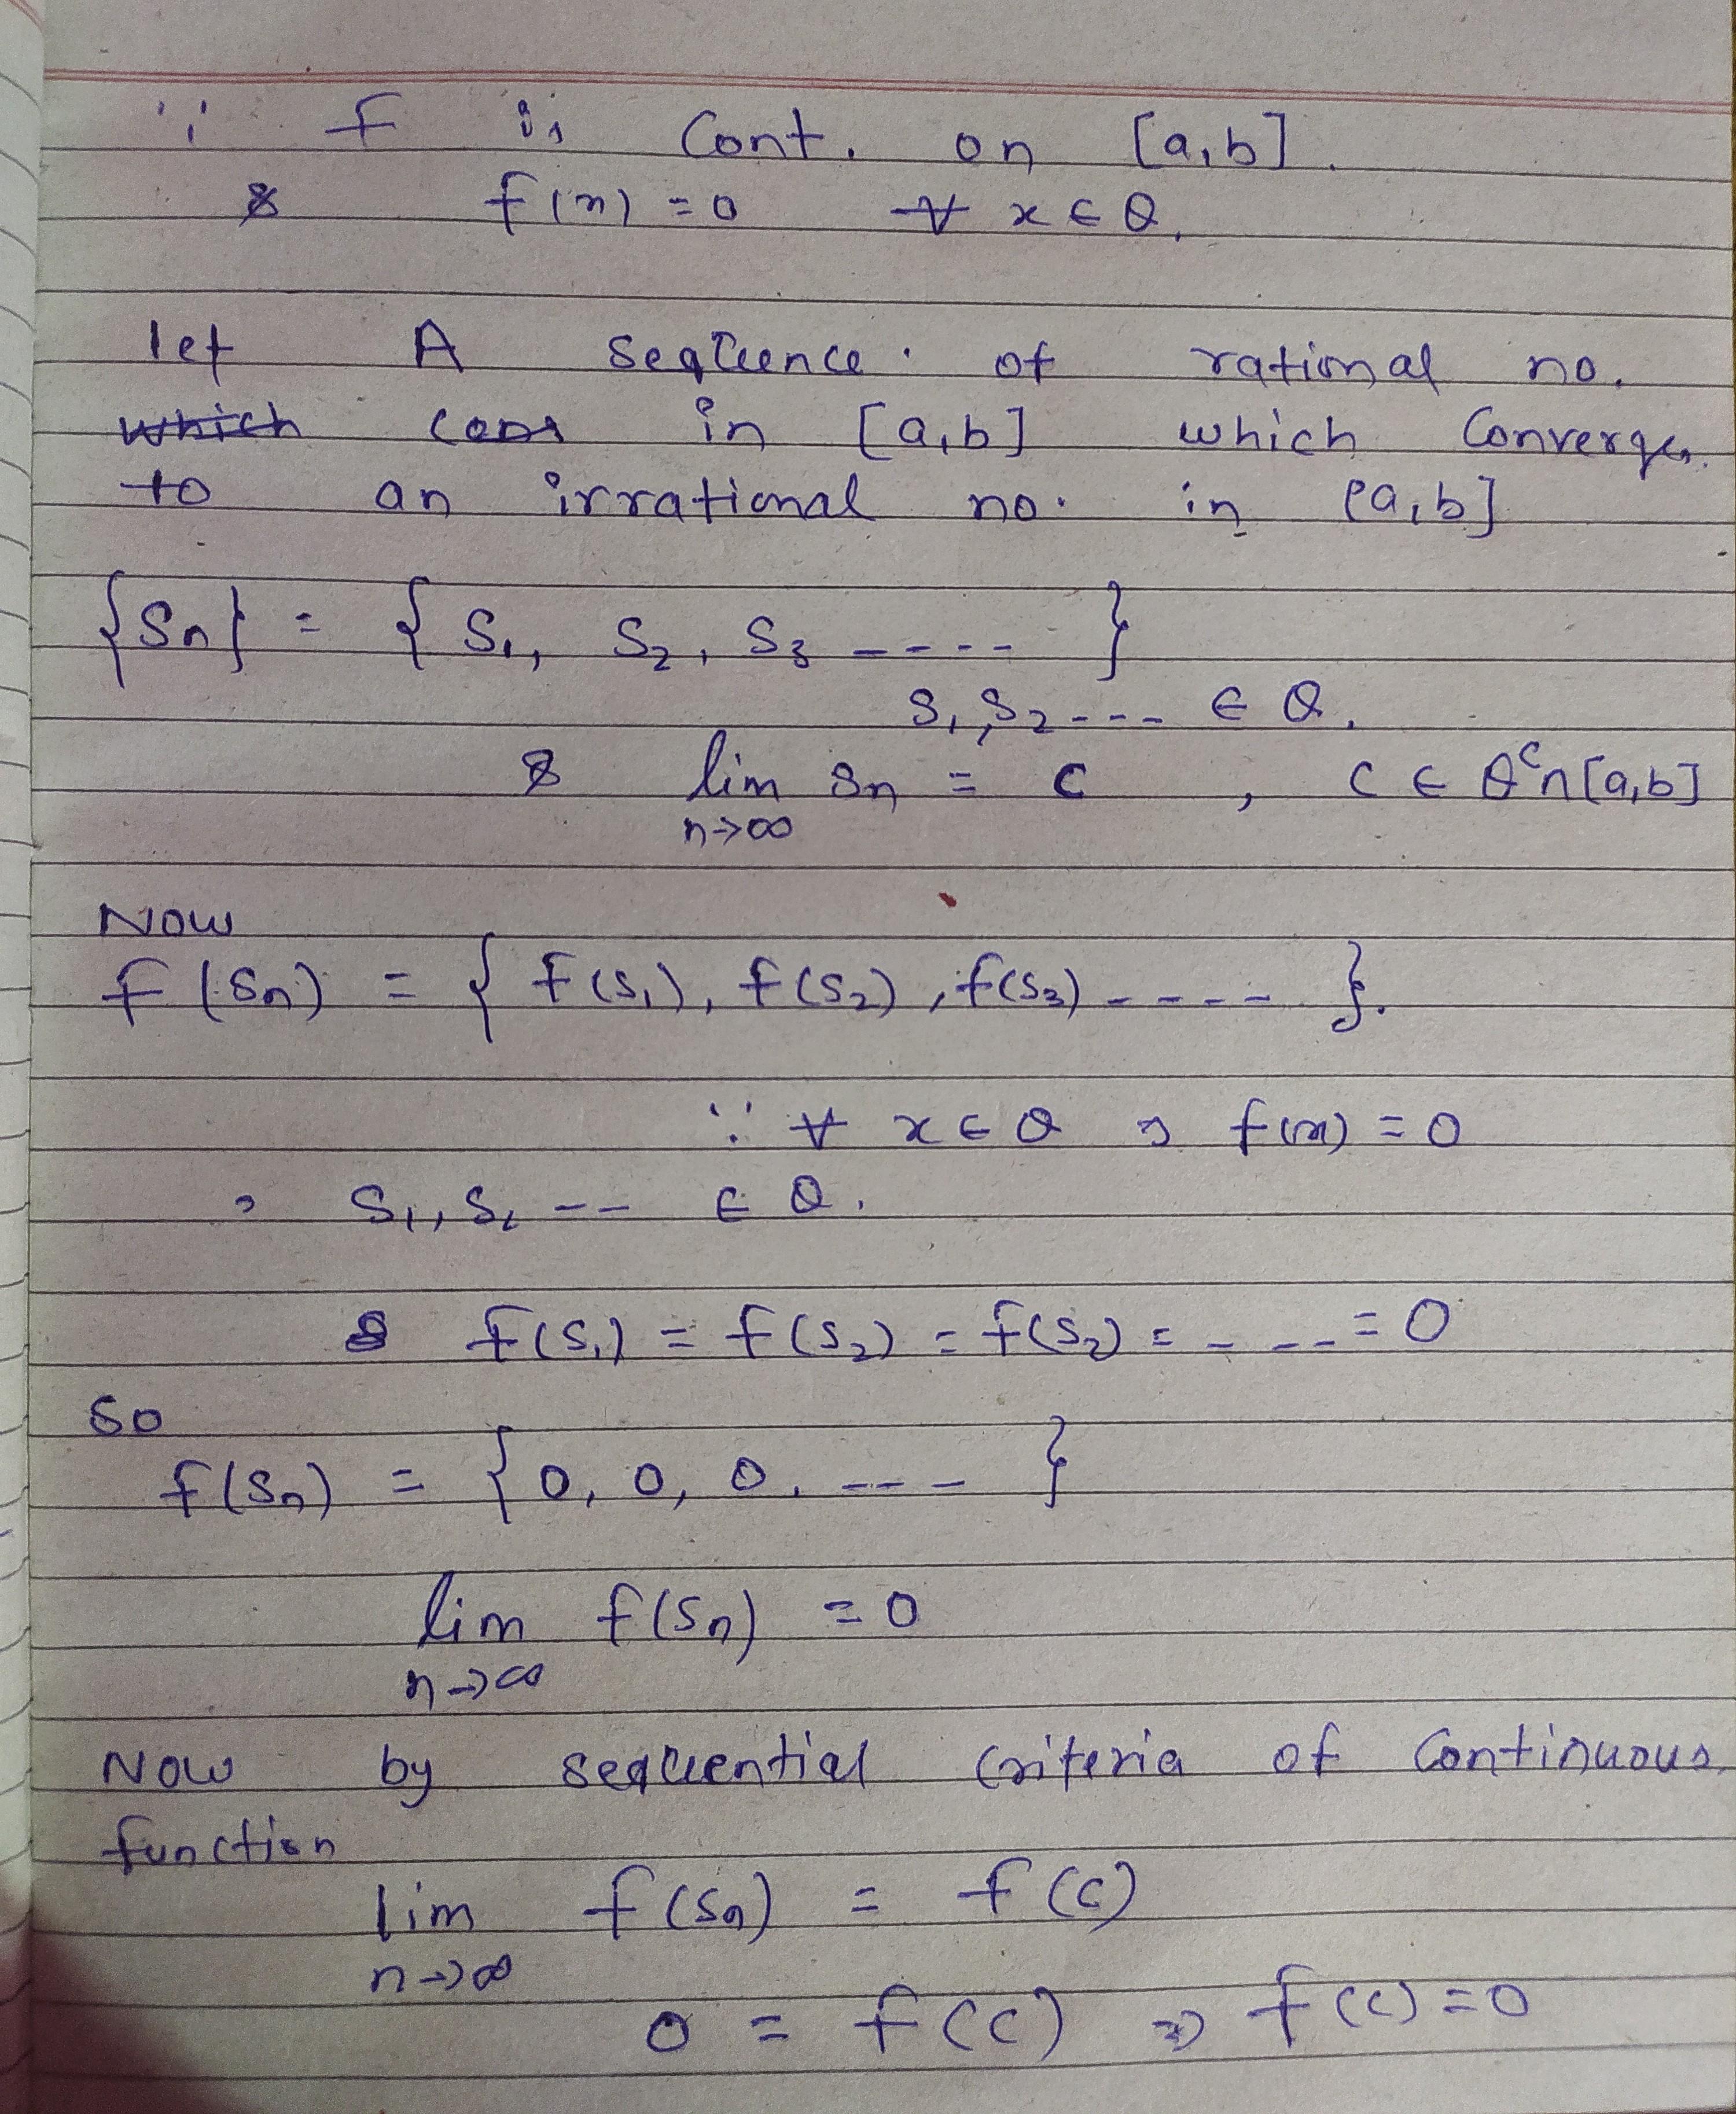 ∵ f is Cont. on [a,b].
& f(x) = 0 ∀ x ∈ Q.
let A Sequence of rational no.
which cons in [a,b] which Converges
to an irrational no. in [a,b]
{Sn} = { S1, S2, S3 ---- }
S1, S2 --- ∈ Q.
& lim Sn = c , c ∈ Q^c ∩ [a,b]
n→∞
Now
f(Sn) = { f(S1), f(S2), f(S3) ---- }.
∵ ∀ x ∈ Q ⇒ f(x) = 0
, S1, S2 -- ∈ Q.
& f(S1) = f(S2) = f(S2) = - -- = 0
So
f(Sn) = { 0, 0, 0, --- }
lim f(Sn) = 0
n→∞
Now by sequential Criteria of Continuous
function
lim f(Sn) = f(c)
n→∞
0 = f(c) ⇒ f(c) = 0